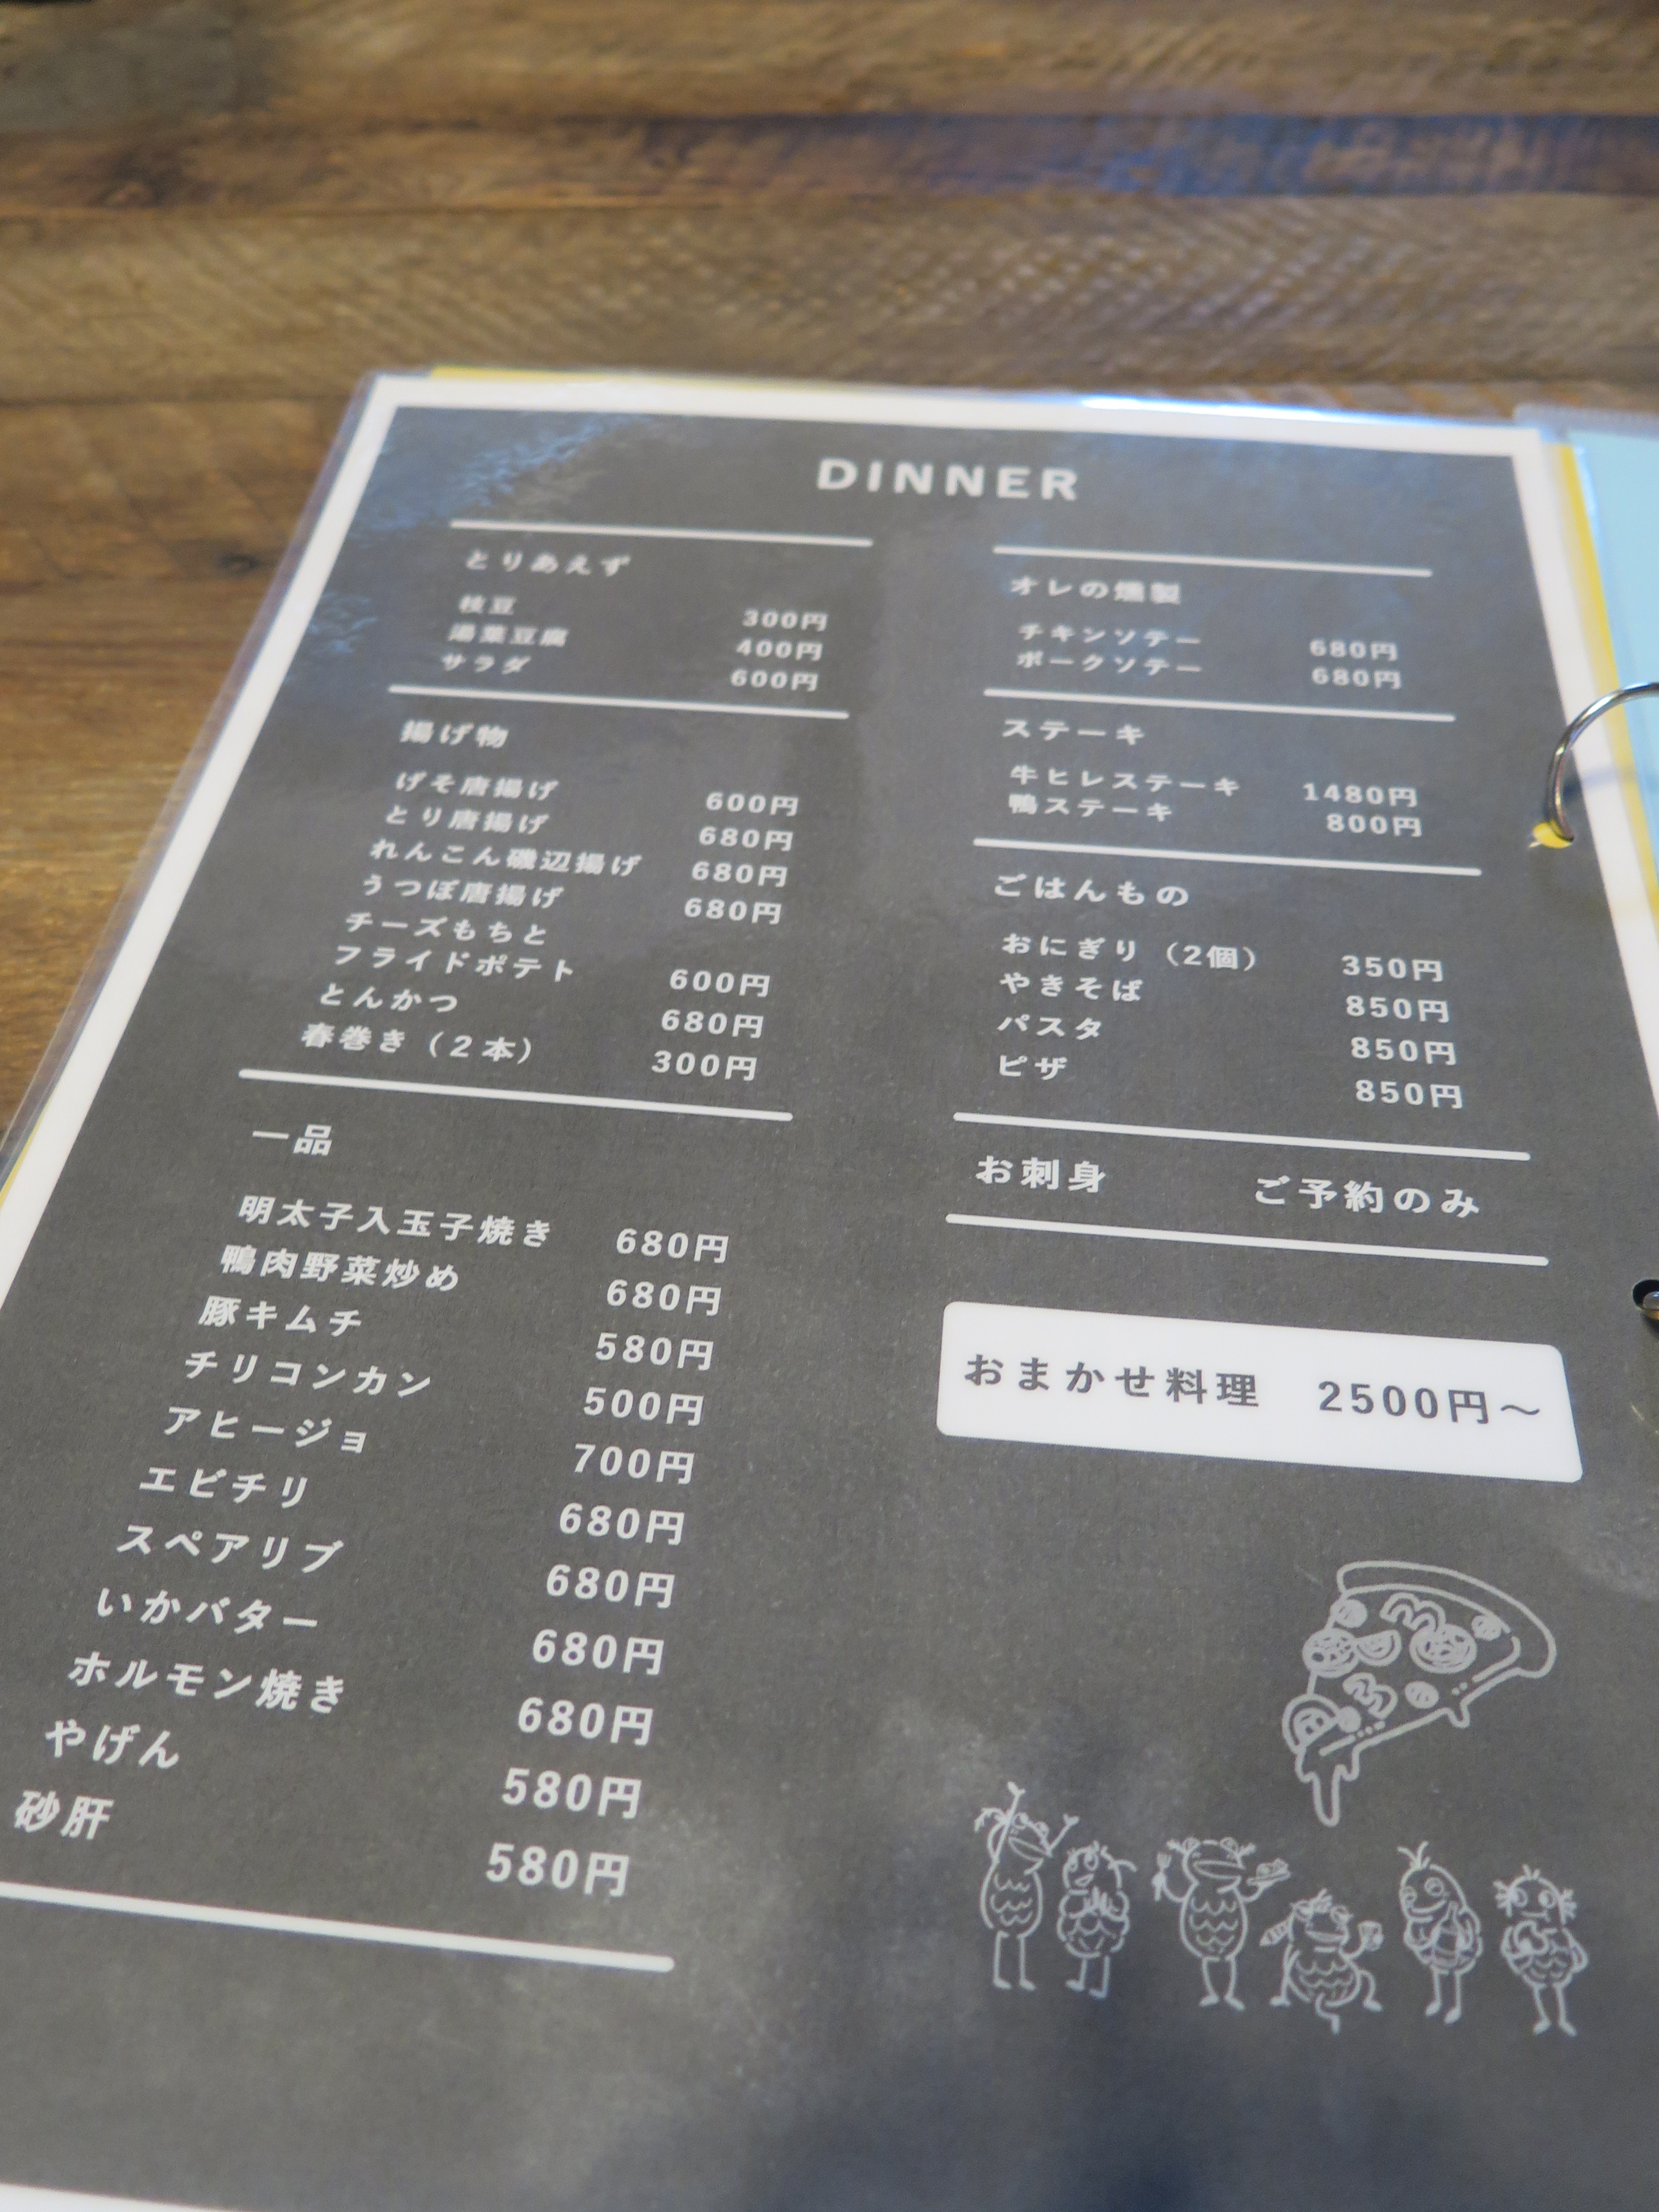 DINNER
とりあえず
枝豆 300円
湯葉豆腐 400円
サラダ 600円
揚げ物
げそ唐揚げ 600円
とり唐揚げ 680円
れんこん磯辺揚げ 680円
うつぼ唐揚げ 680円
チーズもちと
フライドポテト 600円
とんかつ 680円
春巻き（2本） 300円
一品
明太子入玉子焼き 680円
鴨肉野菜炒め 680円
豚キムチ 580円
チリコンカン 500円
アヒージョ 700円
エビチリ 680円
スペアリブ 680円
いかバター 680円
ホルモン焼き 680円
やげん 580円
砂肝 580円
オレの燻製
チキンソテー 680円
ポークソテー 680円
ステーキ
牛ヒレステーキ 1480円
鴨ステーキ 800円
ごはんもの
おにぎり（2個） 350円
やきそば 850円
パスタ 850円
ピザ 850円
お刺身 ご予約のみ
おまかせ料理 2500円～